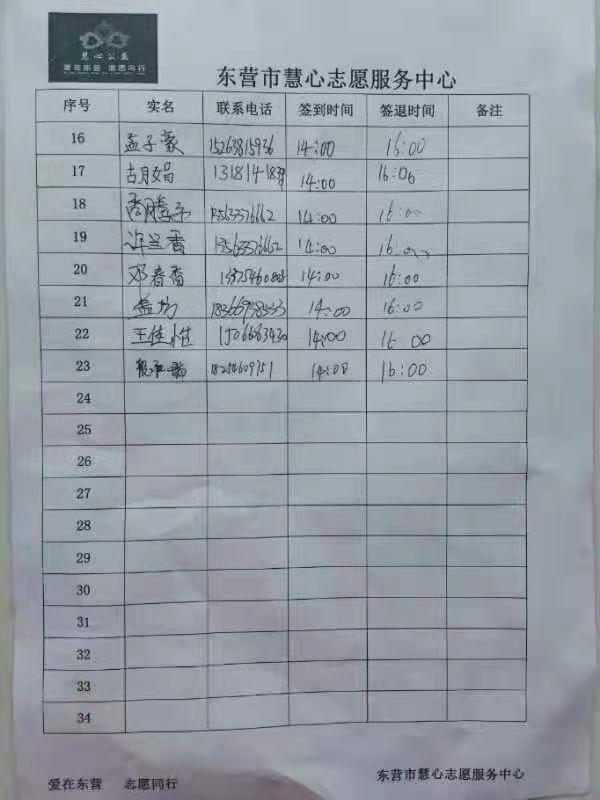 慧心公益
爱在东营 志愿同行
东营市慧心志愿服务中心
序号 实名 联系电话 签到时间 签退时间 备注
16 孟子豪 15263815936 14:00 16:00
17 胡娟 14:00 16:06
18 14:00 16:00
19 许兰香 14:00
20 邓春香 14:00 16:00
21 14:00 16:00
22 王佳 14:00 16:00
23 18254609151 14:00 16:00
24
25
26
27
28
29
30
31
32
33
34
爱在东营 志愿同行 东营市慧心志愿服务中心